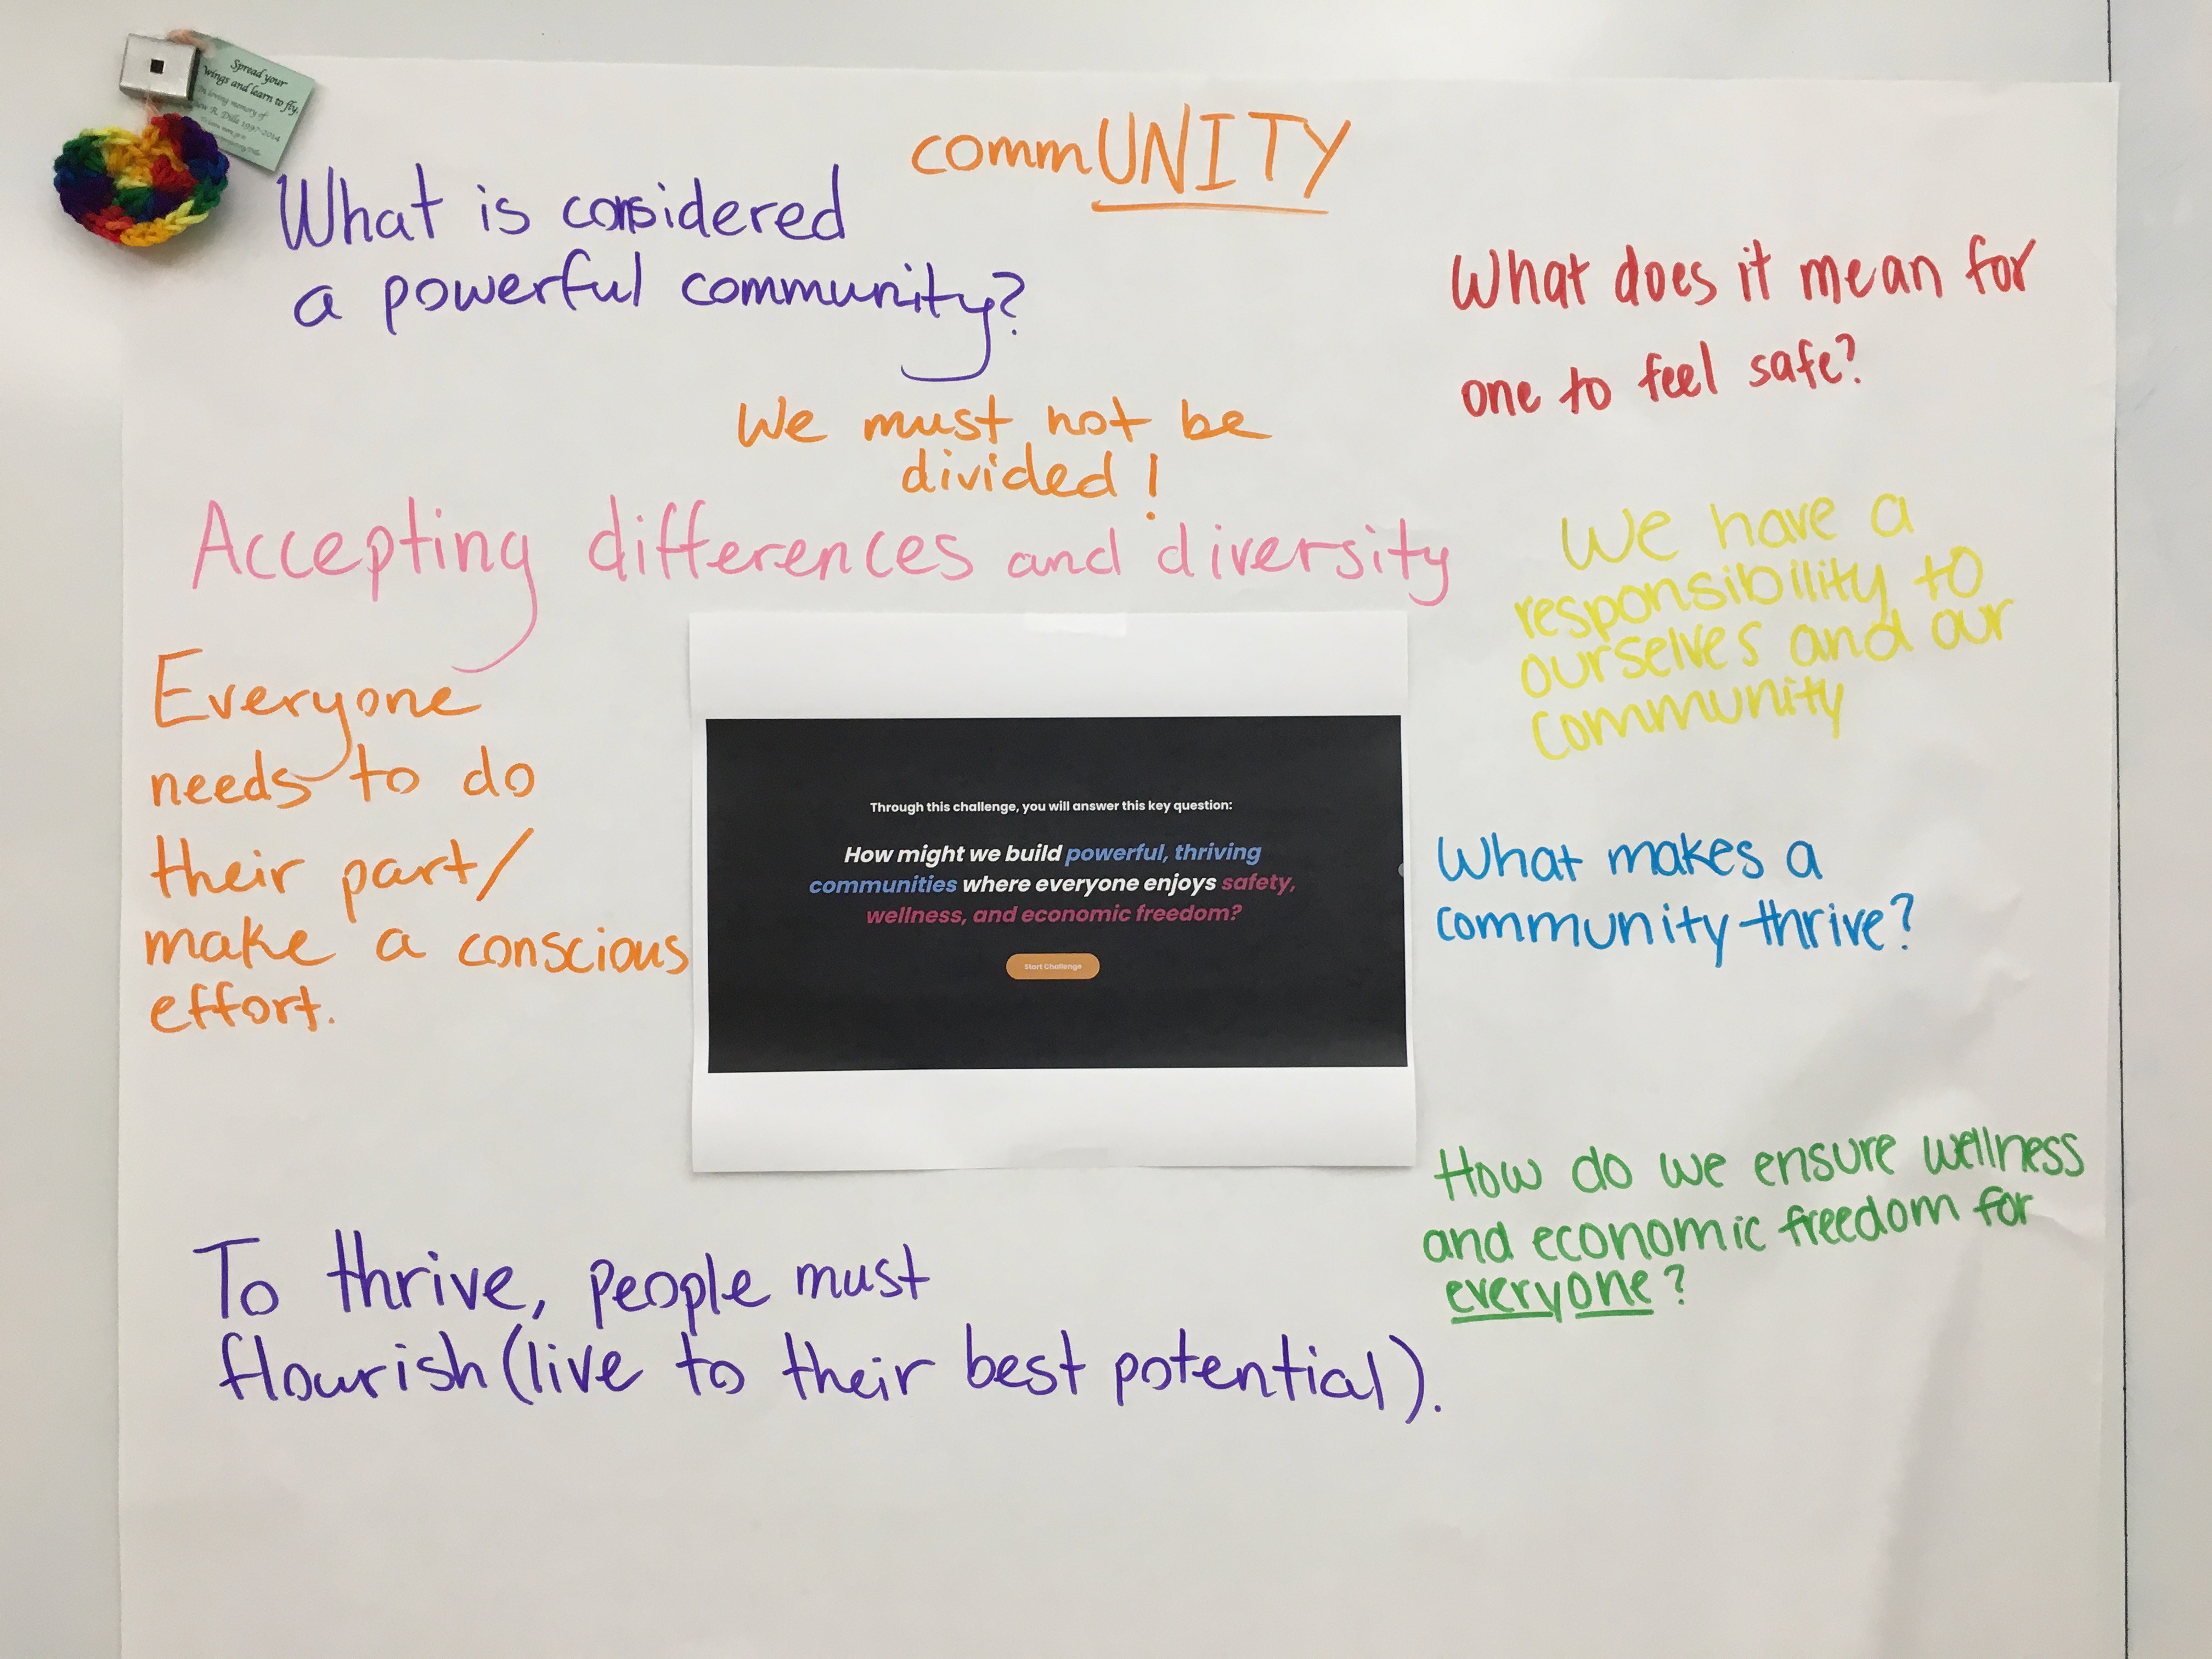 Spread your
wings and learn to fly.
In loving memory of
R. Dille 1997-2014
commUNITY
What is considered
a powerful community?
What does it mean for
one to feel safe?
We must not be
divided!
Accepting differences and diversity
We have a
responsibility to
ourselves and our
community
Everyone
needs to do
their part/
make a conscious
effort.
Through this challenge, you will answer this key question:
How might we build powerful, thriving
communities where everyone enjoys safety,
wellness, and economic freedom?
Start Challenge
What makes a
community thrive?
How do we ensure wellness
and economic freedom for
everyone?
To thrive, people must
flourish (live to their best potential).